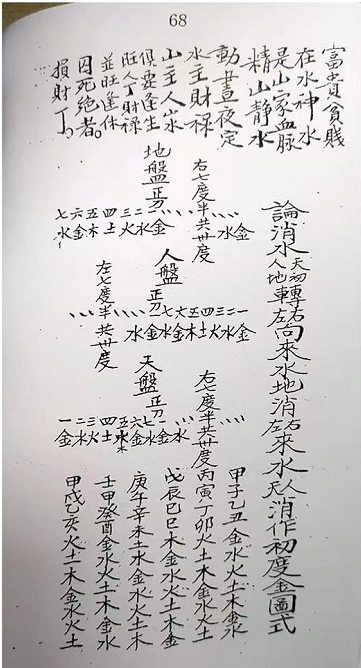 68
富貴貧賤
在水神水
是山家血脉
精山静水
動晝夜定
水主財禄
山主人
俱要逢生
旺人丁財禄
並旺逢休
囚死絕者。
損財丁。
論消水天初轉右人地轉左向來水地消右左來水人天消作初度金圖式
地盤正刀
右七度半共卅度
七六五四三二一
水金木土火水金
水金
人盤正刀
左七度半共卅度
七六五四三二一
水金水金木土火水金
天盤正刀
右七度半共卅度
一二三四五六七
金水火土木金水金水
甲子乙丑金水火土木金水
丙寅丁卯火土木金水火土
戊辰己巳木金水火土木金
庚午辛未土木金水火土木
壬申癸酉金水火土木金水
甲戌乙亥火土木金水火土